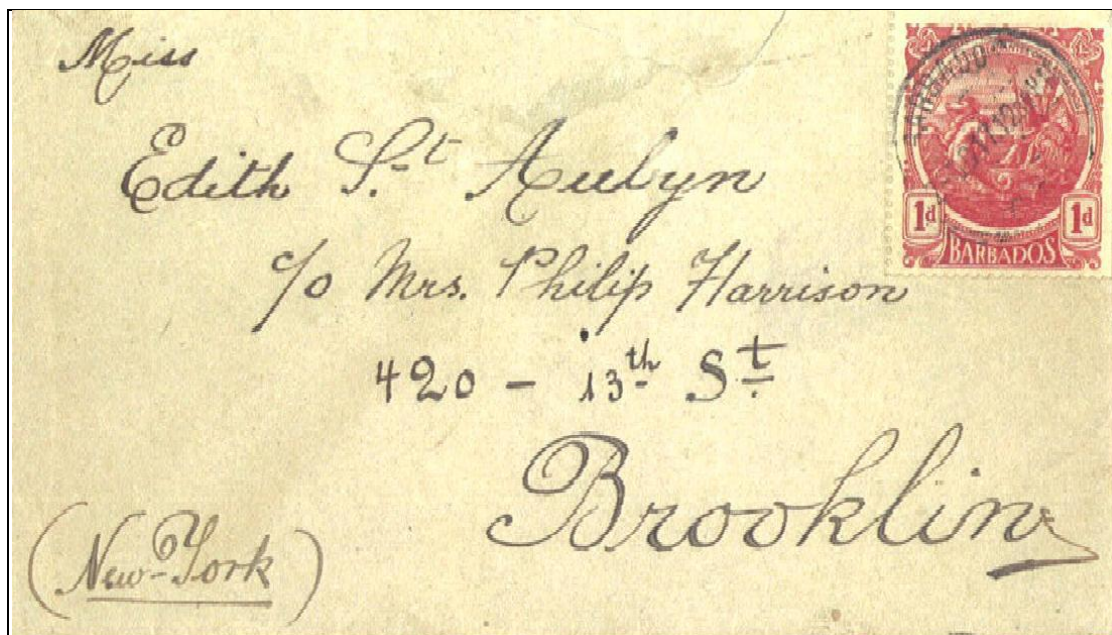 Miss
Edith S.t Aulyn
c/o Mrs. Philip Harrison
420 - 13th St.
Brooklin
(New-York)
1d 1d
BARBADOS